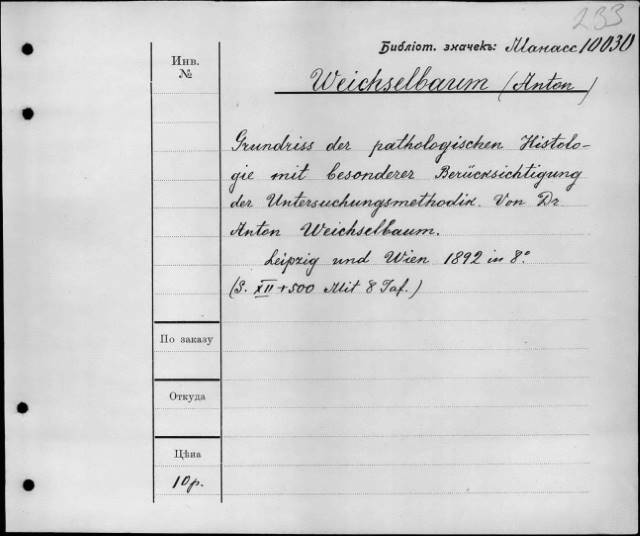 233
Библіот. значекъ: Манасс 10030
Инв.
№
Weichselbaum (Anton)
Grundriss der pathologischen Histolo-
gie mit besonderer Berücksichtigung
der Untersuchungsmethodik. Von Dr
Anton Weichselbaum.
Leipzig und Wien 1892 in 8°
(S. XII + 500 Mit 8 Taf.)
По заказу
Откуда
Цѣна
10р.